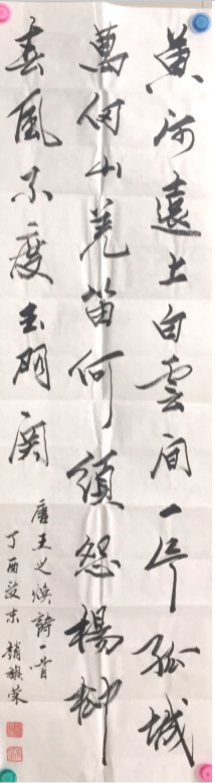 黄河遠上白雲間一片孤城
萬仞山羌笛何須怨楊柳
春風不度玉門関
唐王之渙詩一首
丁酉 趙 榮